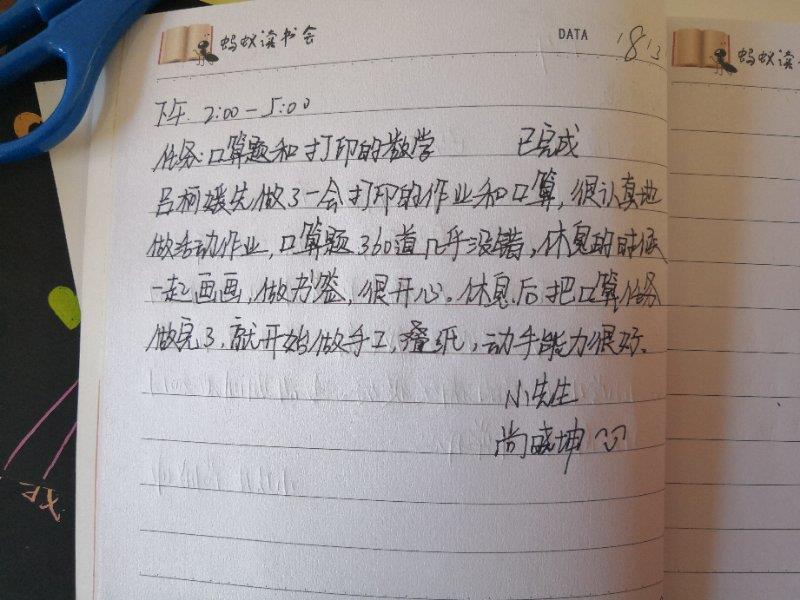 蚂蚁读书会
DATA 1813
下午 2:00-5:00
任务:口算题和打印的数学 已完成
吕柯媛先做了一会打印的作业和口算,很认真地
做活动作业,口算题360道几乎没错,休息的时候
一起画画,做书签,很开心。休息后把口算任务
做完了,就开始做手工,叠纸,动手能力很好。
小先生
尚晓坤
蚂蚁读书